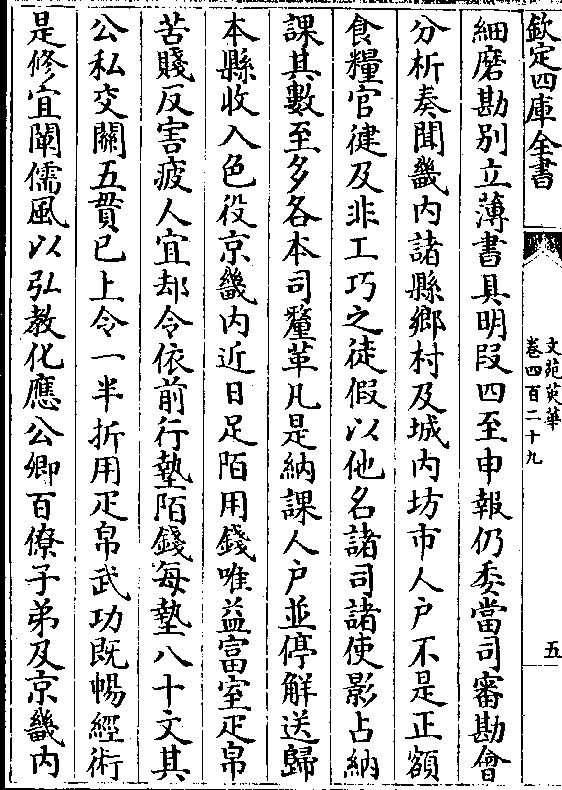 欽定四庫全書
文苑英華
卷四百二十九
五
細磨勘别立薄書具明叚四至申報仍委當司審勘會
分析奏聞畿内諸縣鄉村及城内坊市人户不是正額
食糧官健及非工巧之徒假以他名諸司諸使影占納
課其數至多各本司釐革凡是納課人户並停解送歸
本縣收入色役京畿内近日足陌用錢唯益富室疋帛
苦賤反害疲人宜却令依前行墊陌錢每墊八十文其
公私交關五貫已上令一半折用疋帛武功既暢經術
是修宜闡儒風以弘教化應公卿百僚子弟及京畿内